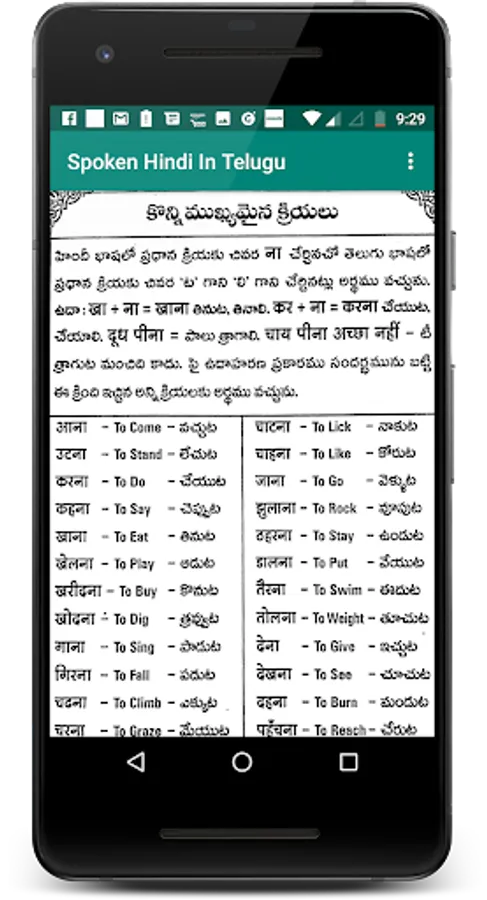 9:29
Spoken Hindi In Telugu
కొన్ని ముఖ్యమైన క్రియలు
హిందీ భాషలో ప్రధాన క్రియకు చివర ना చేర్చినచో తెలుగు భాషలో
ప్రధాన క్రియకు చివర 'ట' గాని 'లి' గాని చేర్చినట్లు అర్థము వచ్చును.
ఉదా: खा + ना = खाना తినుట, తినాలి. कर + ना = करना చేయుట,
చేయాలి. दूध पीना = పాలు త్రాగాలి. चाय पीना अच्छा नहीं - టీ
త్రాగుట మంచిది కాదు. పై ఉదాహరణ ప్రకారము సందర్భమును బట్టి
ఈ క్రింది ఇచ్చిన అన్ని క్రియలకు అర్థము వచ్చును.
आना - To Come - వచ్చుట
उटना - To Stand - లేచుట
करना - To Do - చేయుట
कहना - To Say - చెప్పుట
खाना - To Eat - తినుట
खेलना - To Play - ఆడుట
खरीदना - To Buy - కొనుట
खोदना - To Dig - త్రవ్వుట
गाना - To Sing - పాడుట
गिरना - To Fall - పడుట
चढना - To Climb - ఎక్కుట
चरना - To Graze - మేయుట
चाटना - To Lick - నాకుట
चाहना - To Like - కోరుట
जाना - To Go - వెళ్ళుట
झुलाना - To Rock - వూపుట
ठहरना - To Stay - ఉండుట
डालना - To Put - వేయుట
तैरना - To Swim - ఈదుట
तोलना - To Weight - తూచుట
देना - To Give - ఇచ్చుట
देखना - To See - చూచుట
दहना - To Burn - మండుట
पहुँचना - To Reach - చేరుట